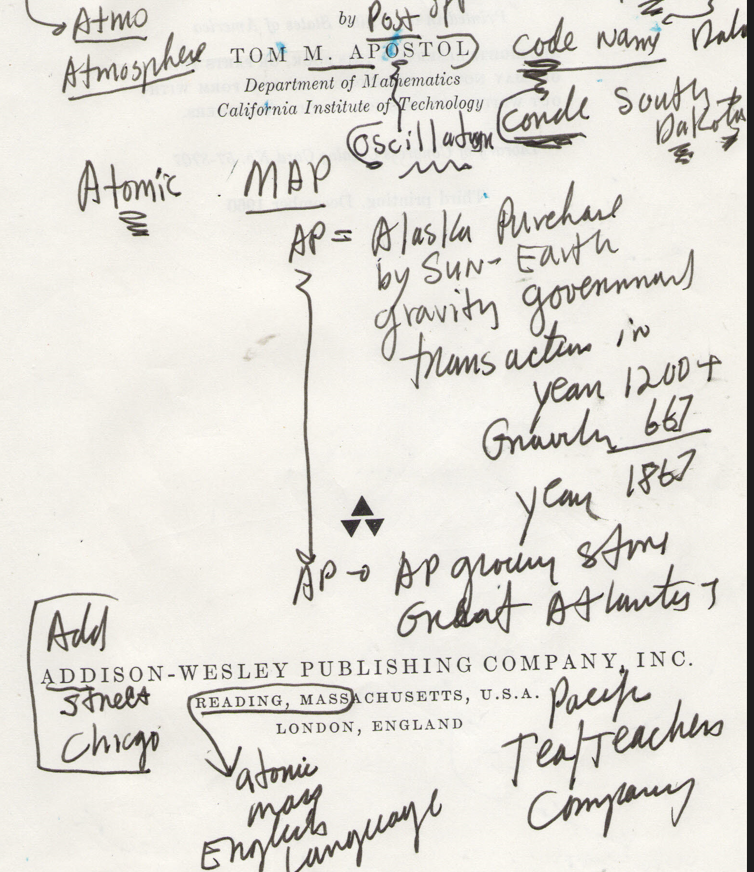 Atmo
Atmosphere
by Post
TOM M. APOSTOL
code name
Department of Mathematics
California Institute of Technology
Conde South
Dakota
Oscillation
Atomic MAP
AP = Alaska Purchase
by SUN-Earth
gravity government
transaction in
year 1200+
Gravity 667
year 1867
AP → AP grocery store
Great Atlantis
Add
ADDISON-WESLEY PUBLISHING COMPANY, INC.
Street
READING, MASSACHUSETTS, U.S.A.
Pacific
Chicgo
LONDON, ENGLAND
Tea/Teachers
Company
atomic
mass
English
Language